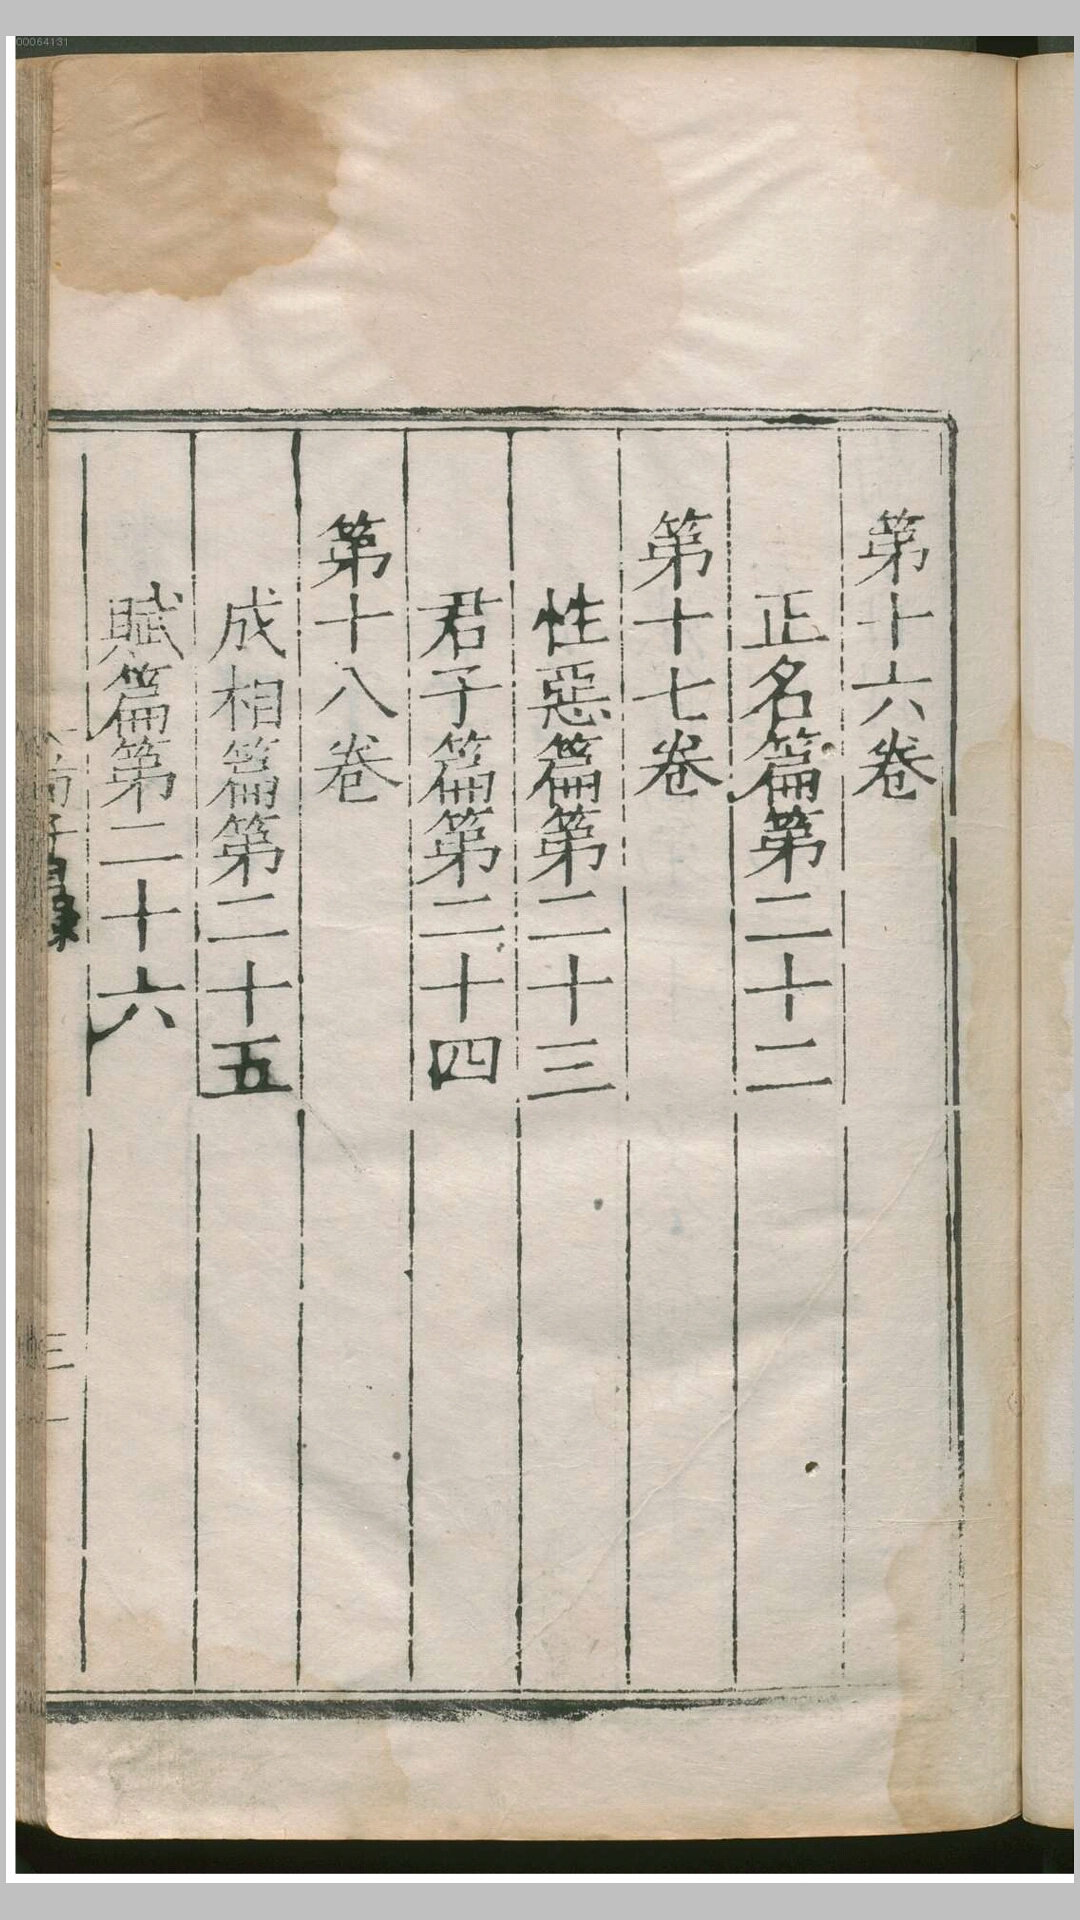 00064131
第十六卷
正名篇第二十二
第十七卷
性惡篇第二十三
君子篇第二十四
第十八卷
成相篇第二十五
賦篇第二十六
三